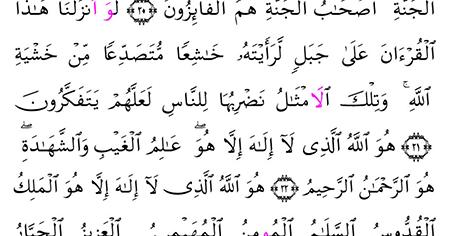 ٱلْجَنَّةِ أَصْحَـٰبُ ٱلْجَنَّةِ هُمُ ٱلْفَآئِزُونَ ۝٢٠ لَوْ أَنزَلْنَا هَـٰذَا
ٱلْقُرْءَانَ عَلَىٰ جَبَلٍ لَّرَأَيْتَهُۥ خَـٰشِعًا مُّتَصَدِّعًا مِّنْ خَشْيَةِ
ٱللَّهِ ۚ وَتِلْكَ ٱلْأَمْثَـٰلُ نَضْرِبُهَا لِلنَّاسِ لَعَلَّهُمْ يَتَفَكَّرُونَ
۝٢١ هُوَ ٱللَّهُ ٱلَّذِى لَآ إِلَـٰهَ إِلَّا هُوَ ۖ عَـٰلِمُ ٱلْغَيْبِ وَٱلشَّهَـٰدَةِ ۖ
هُوَ ٱلرَّحْمَـٰنُ ٱلرَّحِيمُ ۝٢٢ هُوَ ٱللَّهُ ٱلَّذِى لَآ إِلَـٰهَ إِلَّا هُوَ ٱلْمَلِكُ
ٱلْقُدُّوسُ ٱلسَّلَـٰمُ ٱلْمُؤْمِنُ ٱلْمُهَيْمِنُ ٱلْعَزِيزُ ٱلْجَبَّارُ